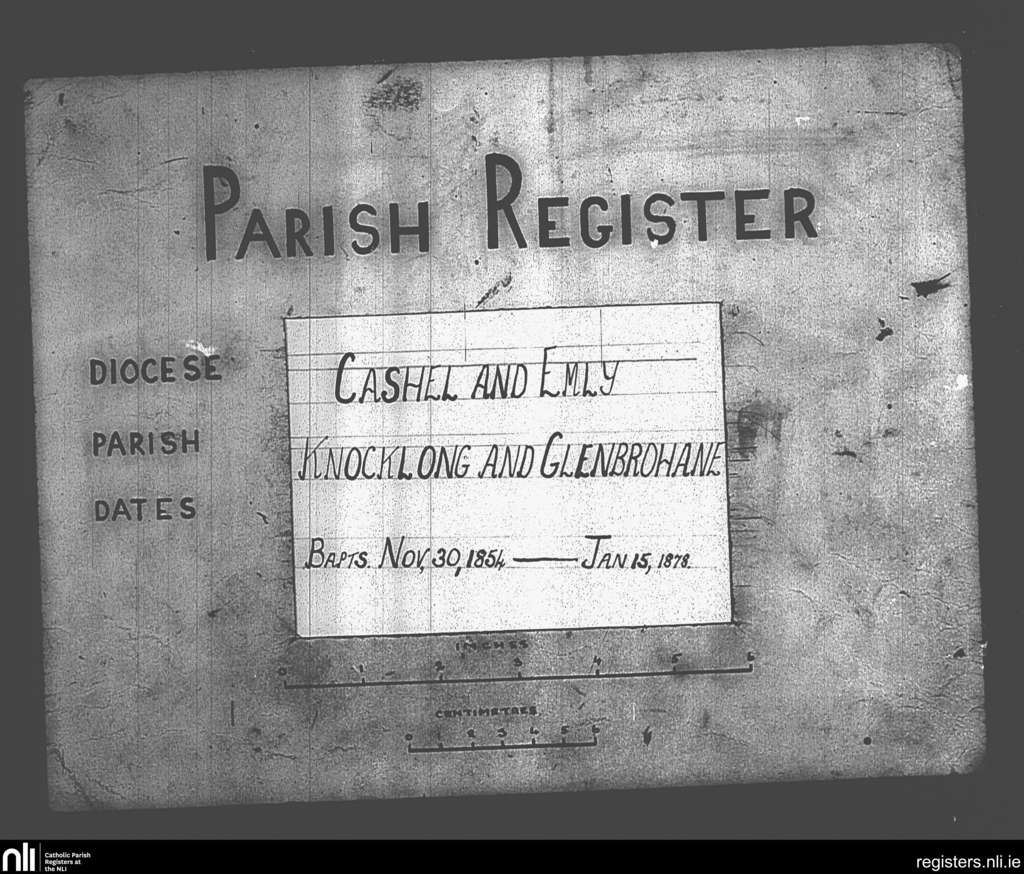 PARISH REGISTER
DIOCESE CASHEL AND EMLY
PARISH KNOCKLONG AND GLENBROHANE
DATES BAPTS. NOV, 30, 1854 — JAN 15, 1878.
INCHES
0 1 2 3 4 5 6
CENTIMETRES
0 1 2 3 4 5 6
nli Catholic Parish
Registers at
the NLI
registers.nli.ie